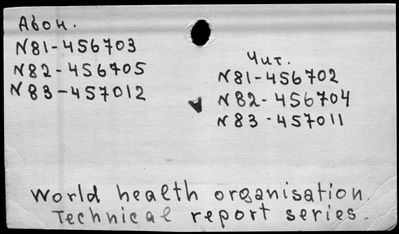 Абон.
N81-456703
N82-456705
N83-457012
Чит.
N81-456702
N82-456704
N83-457011
World health organisation.
Technical report series.